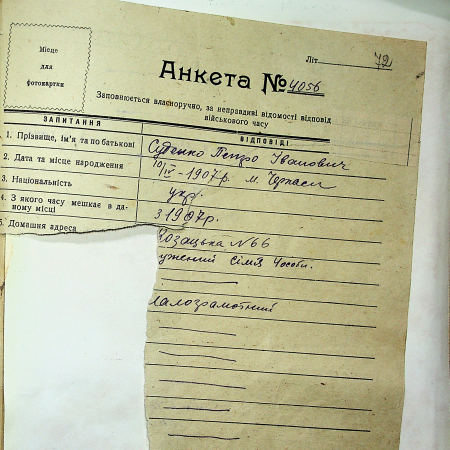 Місце
для
фотокартки
Літ. 72
Анкета № 4056
Заповнюється власноручно, за неправдиві відомості відповід
військового часу
ЗАПИТАННЯ
ВІДПОВІДІ
1. Прізвище, ім'я та по батькові
Петро Іванович
2. Дата та місце народження
10/IV-1907р. м. Черкаси
3. Національність
укр.
4. З якого часу мешкає в да-
ному місці
з 1907р.
5. Домашня адреса
Козацька №66
ужений сімя 4 особи.
малозграмотний